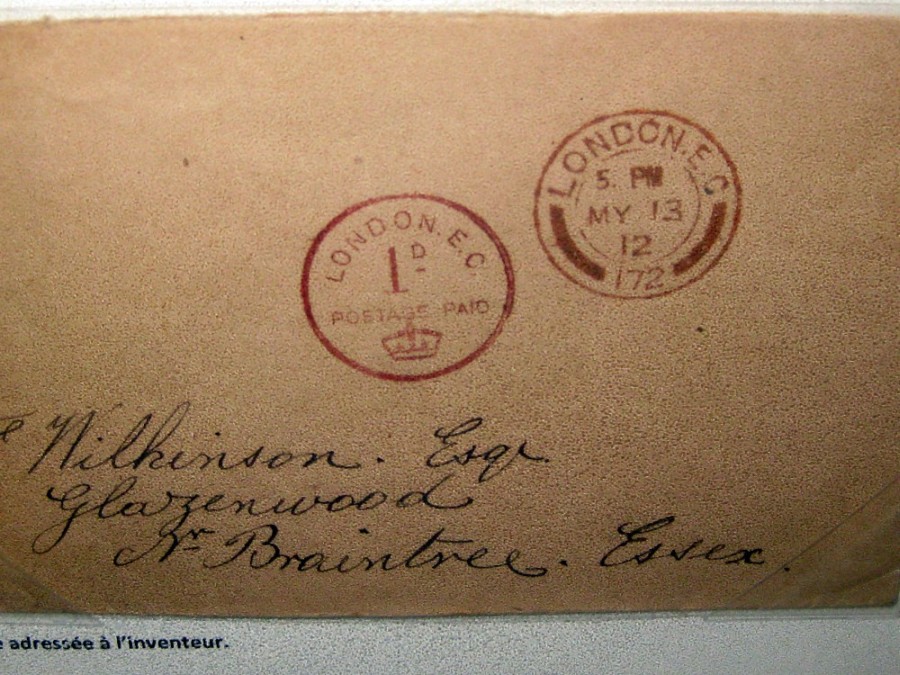 LONDON. E.C.
5. PM
MY 13
12
172
LONDON. E.C.
1D.
POSTAGE PAID
Wilkinson. Esqr
Glazenwood
Nr Braintree. Essex.
adressée à l'inventeur.